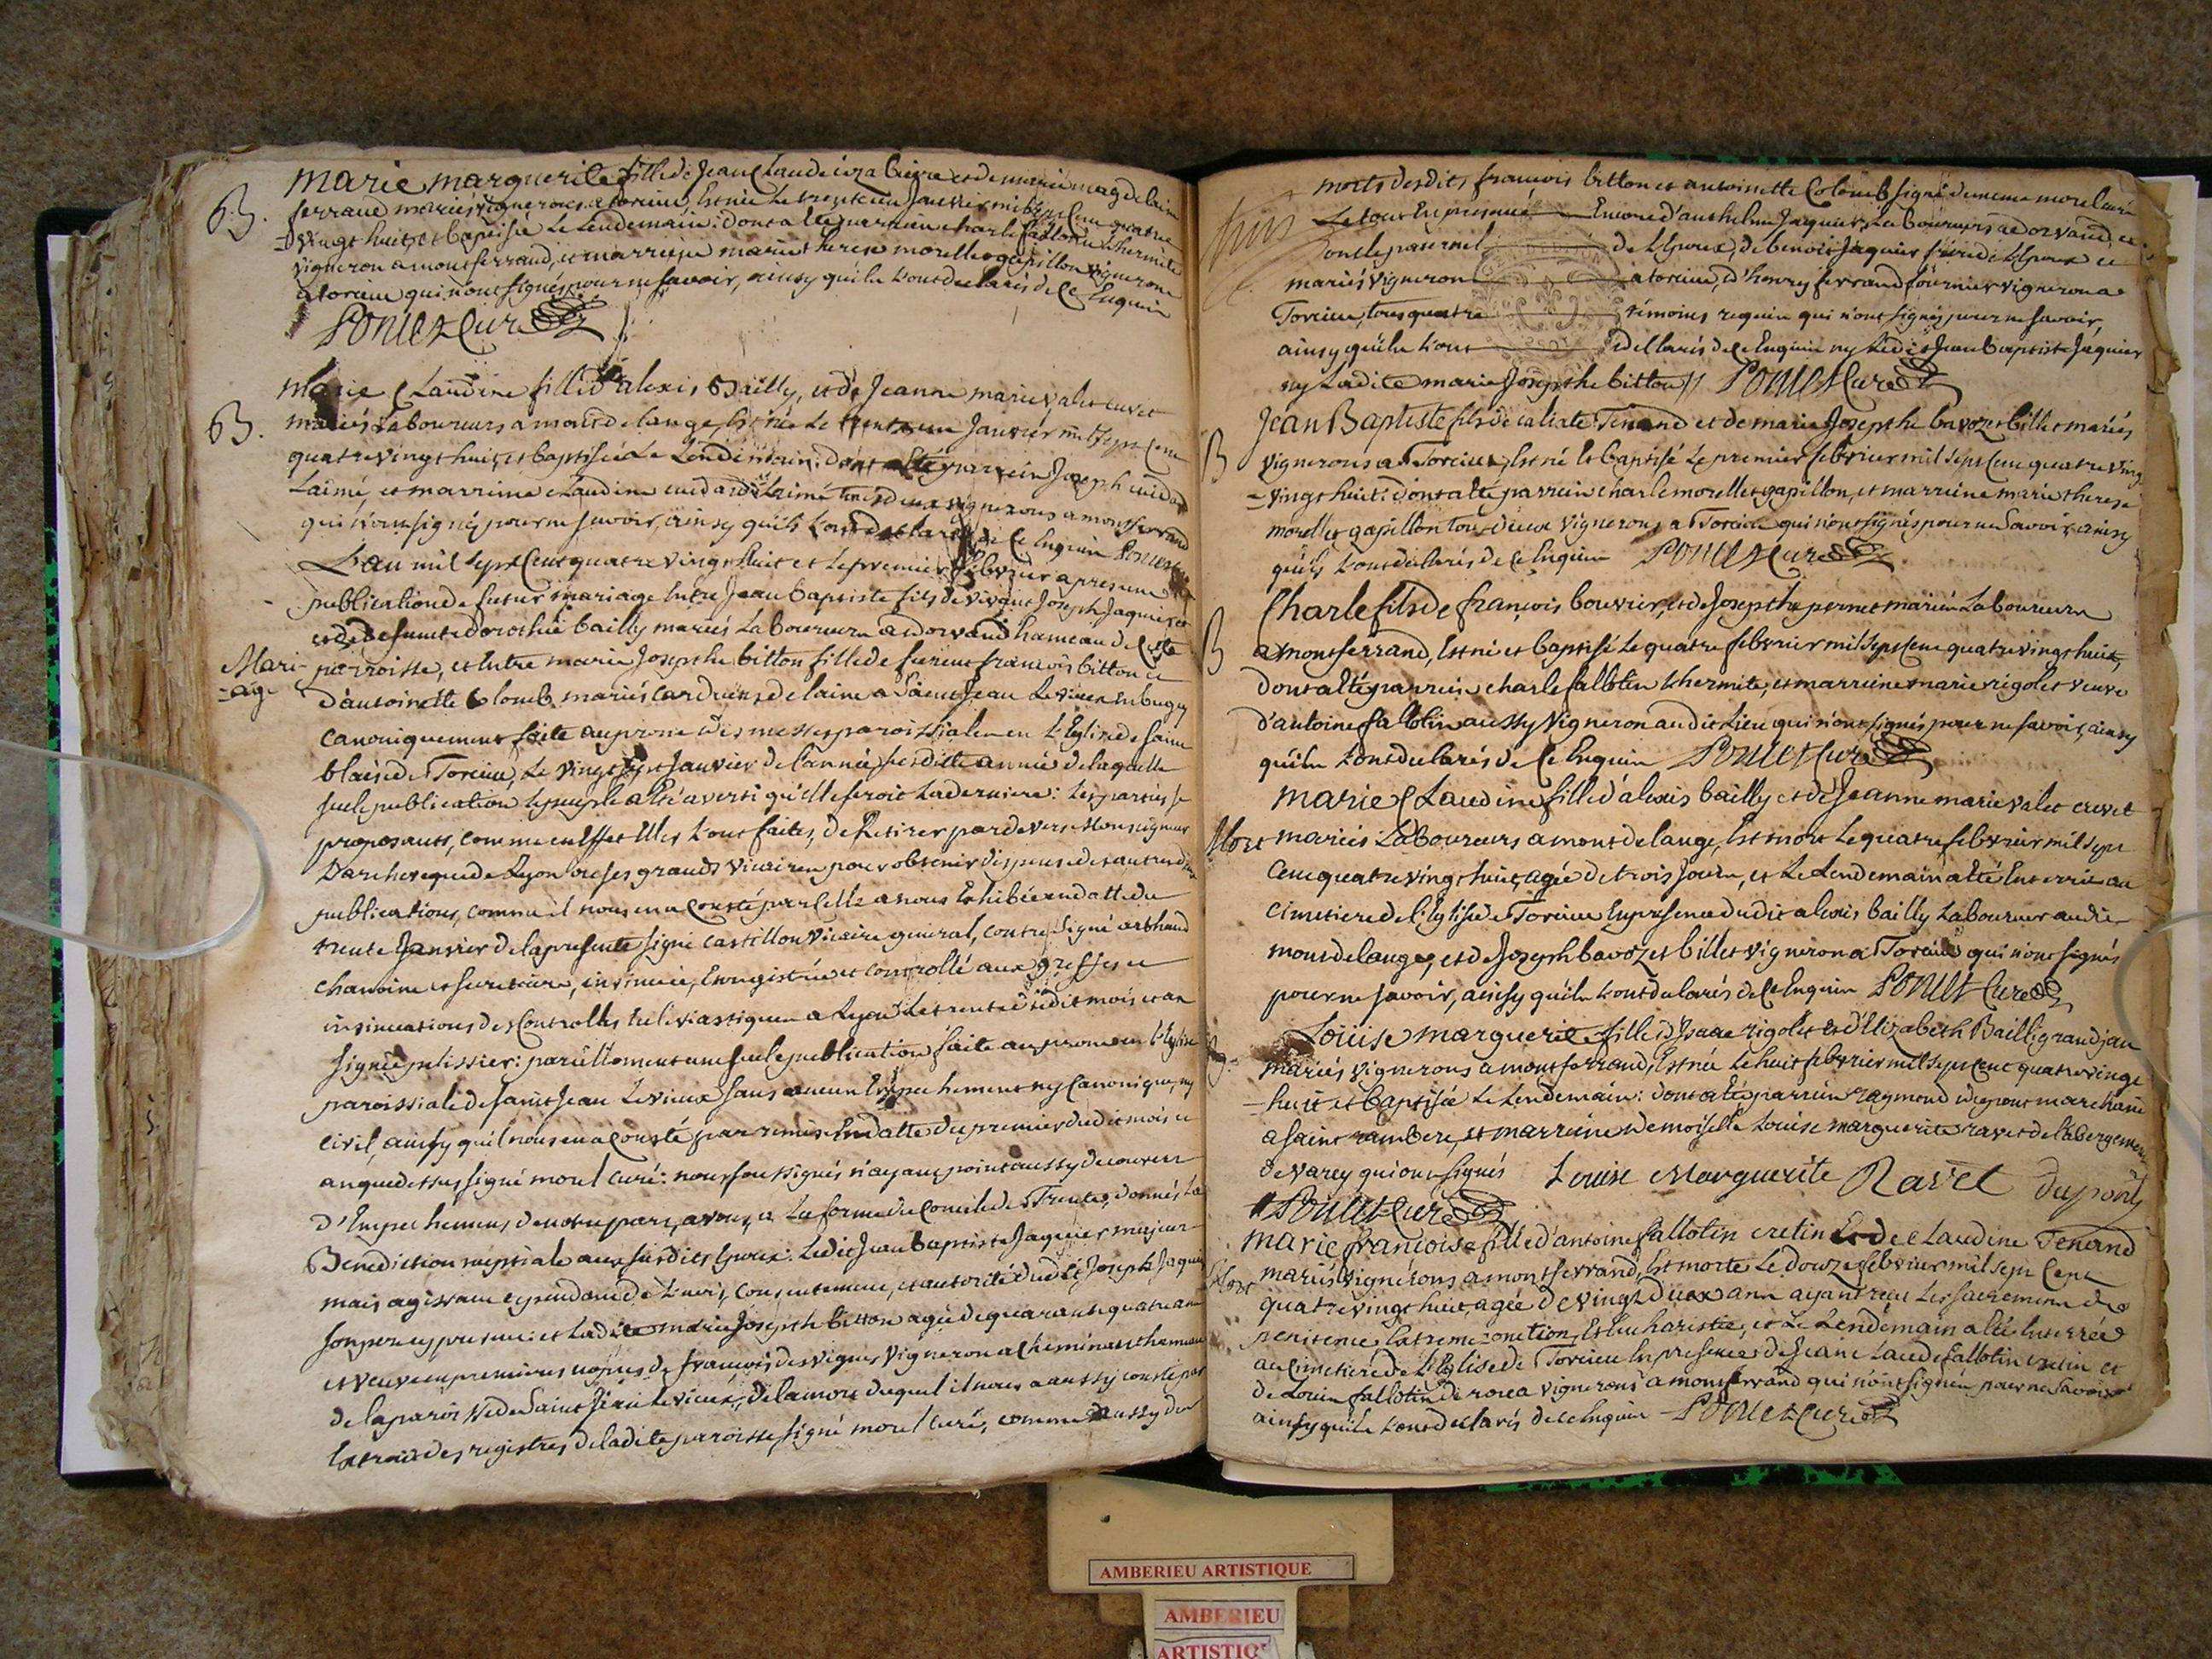 B.
marie marguerite fille de Jean Claude et de marie magdelaine
ferrand mariés vignerons a torcieu, Est née Le trente un Janvier mil sept Cent quatre
-vingt huit, et baptisée Le Lendemain: dont a été parrein charle fallotin L'hermite
vigneron a montferrand, et marreine marie therese morellet gapillon vignerone
a torcieu qui n'ont signés pour ne savoir, ainsy qu'ils L'ont déclarés de Ce Enquis
Poncet Curé
B.
marie Claudine fille d'alexis Bailly, et de Jeanne marie valet cuvet
mariés Laboureurs a mont de lange, Est née Le trente un Janvier mil sept Cent
quatre vingt huit, et baptisée Le Lendemain: dont a été parrein Joseph
Laimé, et marreine claudine Laimé tous deux vignerons a montferrand
qui n'ont signés pour ne savoir, ainsy qu'ils L'ont déclarés de Ce Enquis Poncet
Mari-
-age
L'an mil sept Cent quatre vingt huit et Le premier febvrier apres une
publication de futur mariage Entre Jean baptiste fils de vivant Joseph Jaquier et
de defunte dorothée bailly mariés Laboureurs a dorvand hameau de Cette
parroisse, et Entre marie Josephe bitton fille de furent francois bitton et
d'antoinette Colomb mariés cardeurs de laine a Saint Jean Le vieux En bugey
canoniquement faite au prone des messes paroissiales en L'Eglise de saint
blaise de Torcieu, Le vingt sept Janvier de l'année susditte année de laquelle
seule publication Le peuple a été averti qu'Elle seroit La derniere: Les parties se
proposants, comme en Effet Elles L'ont faites, de Retirer par devers Monseigneur
L'archeveque de Lyon ou ses grands vicaires pour obtenir dispense des autres deux
publications, comme il nous en a Consté par Celle a nous Exhibée en datte du
trente Janvier de la presente signé castillon vicaire general, contre signé
chanoine et secretaire, insinuée, Enregistrée et Controllé aux greffes et
insinuations des Controlles Ecclesiastiques a Lyon Le trente dudit mois et an
signé pelissier: pareillement une seule publication faite au prone en L'Eglise
paroissiale de saint Jean Le vieux sans aucun Empechement ny Canonique, ny
civil, ainsy qu'il nous en a Consté par remise En datte du premier dudit mois et
an que dessus signé morel curé: nous soussignés n'ayant point aussy decouvert
d'Empechement de notre part, avons, a La forme du Concile de Trente, donnés La
Benediction nuptiale aux susdits Epoux: Ledit Jean baptiste Jaquier majeur
mais agissant cependant de L'avis, consentement, et autorité dudit Joseph Jaquier
son pere cy present: et Ladite marie Josephe bitton agée de quarante quatre ans
et veuve en premieres noces de francois desvignes vigneron a Cheminant hameau
de la paroisse de Saint Jean Le vieux, de la mort duquel il nous a aussy consté par
Extrait des registres de ladite paroisse, signé morel curé, comme aussy des
morts desdits francois bitton et antoinette Colomb signé de meme morel curé
Le tout En presence Encore d'anthelme Jaquier, Laboureur a dorvand, et
oncle paternel de L'Epoux, de benoit Jaquier frere de L'Epoux et
mariés vigneron a torcieu, d'henry ferrand fournier vigneron a
Torcieu, tous quatre témoins requis qui n'ont signés pour ne savoir,
ainsy qu'ils L'ont déclarés de Ce Enquis ny Ledit Jean baptiste Jaquier
ny Ladite marie Josephe bitton // Poncet Curé
B
Jean Baptiste fils de calixte Tenand et de marie Josephe bavozet billet mariés
vignerons a Torcieu, Est né Et baptisé Le premier febvrier mil sept Cent quatre ving
-vingt huit: dont a été parrein charle morellet gapillon, et marreine marie therese
morellet gapillon tous deux vignerons a Torcieu qui n'ont signés pour ne Savoir, ainsy
qu'ils L'ont déclarés de Ce Enquis Poncet Curé
B
Charle fils de françois bouvier, et de Josephe pernet mariés Laboureurs
a montferrand, Est né et baptisé Le quatre febvrier mil sept Cent quatre vingt huit,
dont a été parrein charle fallotin L'hermite, et marreine marie rigolet veuve
d'antoine fallotin aussy vigneron audit Lieu qui n'ont signés pour ne savoir, ainsy
qu'ils L'ont déclarés de Ce Enquis Poncet Curé
Mort
marie Claudine fille d'alexis bailly et de Jeanne marie valet cuvet
mariés Laboureurs a mont de lange, Est mort Le quatre febvrier mil sept
Cent quatre vingt huit, agée de trois jours, et Le Lendemain a été Enterrée au
cimetiere de L'Eglise de Torcieu En presence dudit alexis bailly Laboureur audit
mont de lange, et de Joseph bavozet billet vigneron a Torcieu qui n'ont signés
pour ne savoir, ainsy qu'ils L'ont déclarés de Ce Enquis Poncet Curé
B.
Loüise marguerite fille d'Isaac rigolet et d'Elizabeth Bailli grandjan
mariés vignerons a montferrand, Est née Le huit febvrier mil sept cent quatre vingt
-huit et baptisée Le Lendemain: dont a été parrein raymond dupont marchand
a saint rambert, et marreine demoiselle Louise marguerite ravet de l'abergement
de varey qui ont signés Louise Marguerite Ravet Dupont
Poncet Curé
Mort
marie françoise fille d'antoine fallotin cretin Et de Claudine Tenand
mariés vignerons a montferrand, Est morte Le douze febvrier mil sept Cent
quatre vingt huit, agée de vingt deux ans ayant reçu Les sacrements de
penitence, Extreme onction, Et Eucharistie, et Le Lendemain a été Enterrée
au Cimetiere de L'Eglise de Torcieu En presence de Jean Claude fallotin cretin et
de Louis fallotin de roua vignerons a montferrand qui n'ont signés pour ne Savoir
ainsy qu'ils L'ont déclarés de Ce Enquis Poncet Curé
AMBERIEU ARTISTIQUE
AMBERIEU
ARTISTIQ